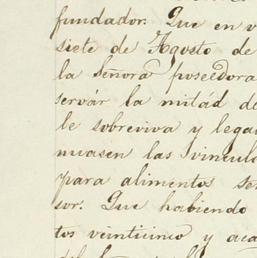 fundador. Que en v
siete de Agosto de
la Señora poseedora
servár la mitád d
le sobreviva y lega
nuasen las vincul
para alimentos se
sor. Que habiendo
tos veinticinco y aca